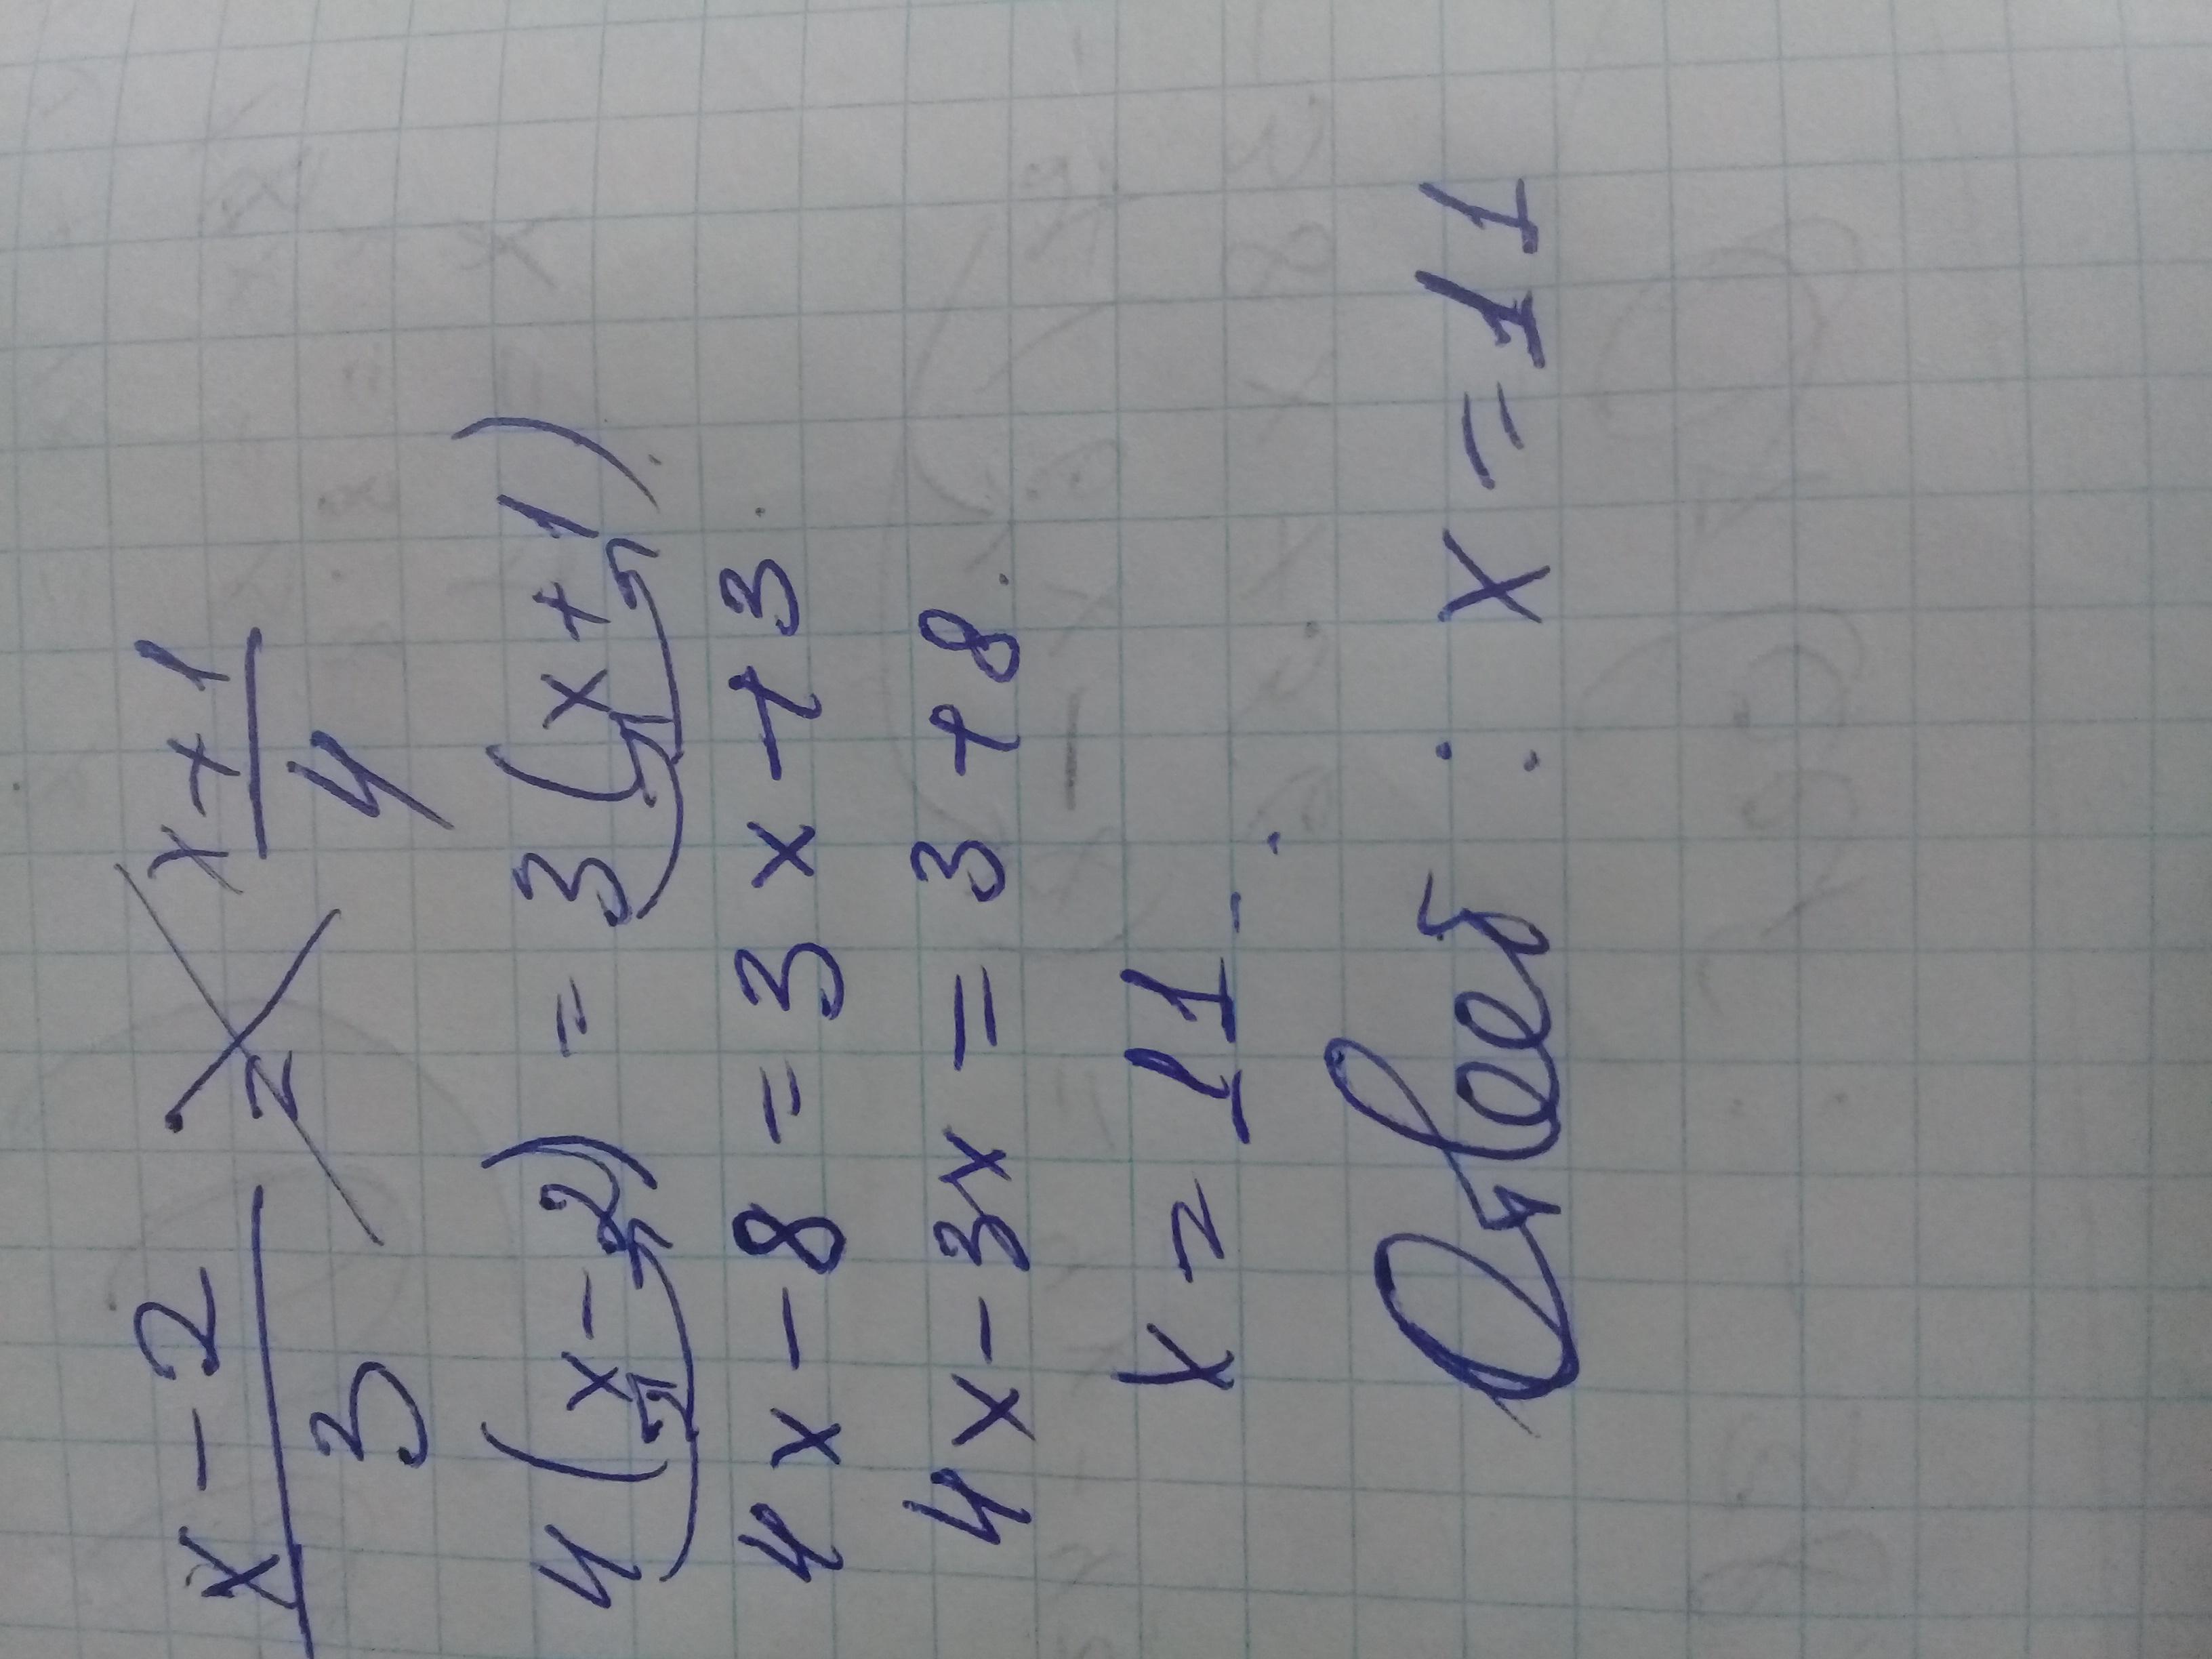 x-2/3 = x+1/4
4(x-2) = 3(x+1)
4x-8=3x+3
4x-3x=3+8
x=11.
Ответ: x=11